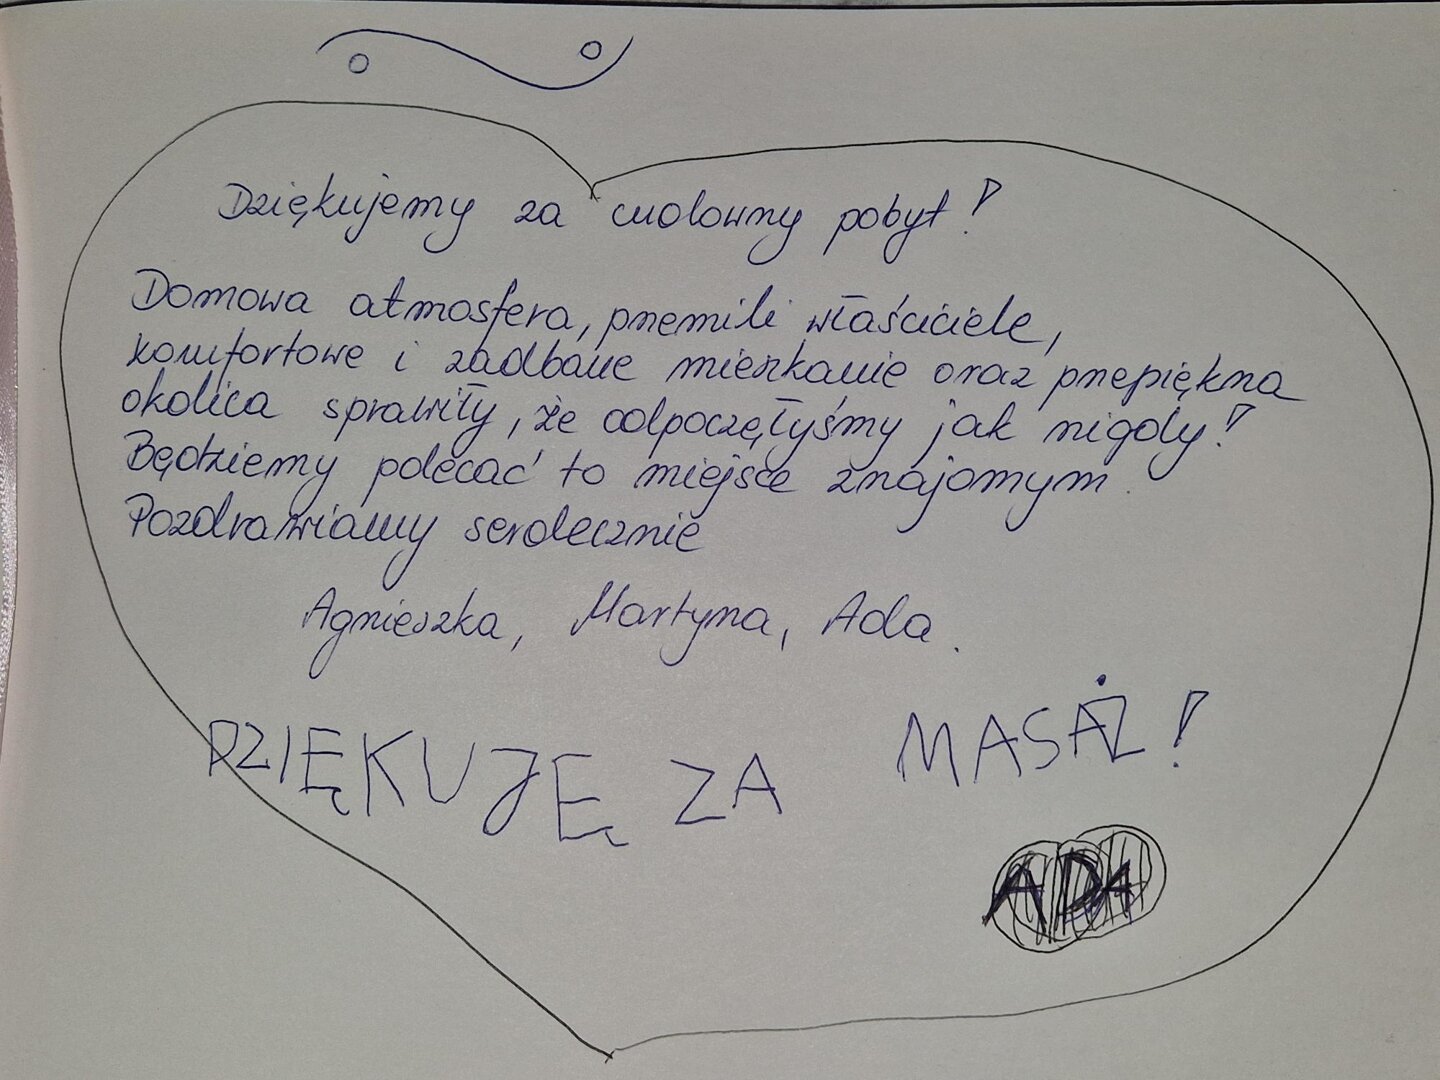 Dziękujemy za cudowny pobyt!
Domowa atmosfera, przemili właściciele,
komfortowe i zadbane mieszkanie oraz przepiękna
okolica sprawiły, że odpoczęłyśmy jak nigdy!
Będziemy polecać to miejsce znajomym.
Pozdrawiamy serdecznie
Agnieszka, Martyna, Ada.
DZIĘKUJĘ ZA MASAŻ!
ADA